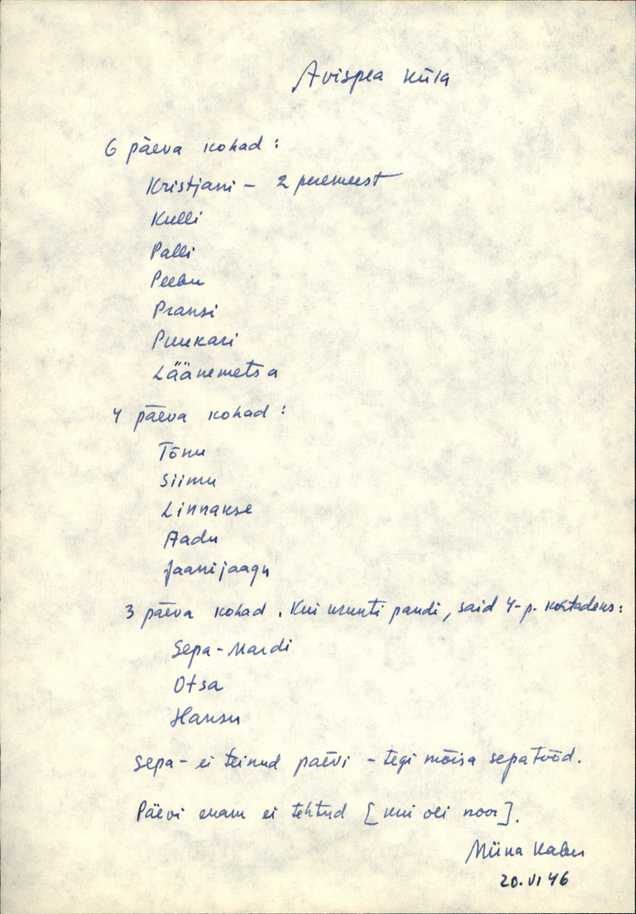 Avispea küla
6 päeva kohad:
Kristjani - 2 peremeest
Kulli
Palli
Peebu
Pransi
Puukari
Läänemetsa
4 päeva kohad:
Tõnu
Siimu
Linnakse
Aadu
Jaanijaagu
3 päeva kohad. Kui krunti pandi, said 4-p. kohtadeks:
Sepa-Mardi
Otsa
Hansu
Sepa - ei teinud päevi - tegi mõisa sepatööd.
Päevi enam ei tehtud [kui oli noor].
Miina Kabu
20.VI 46